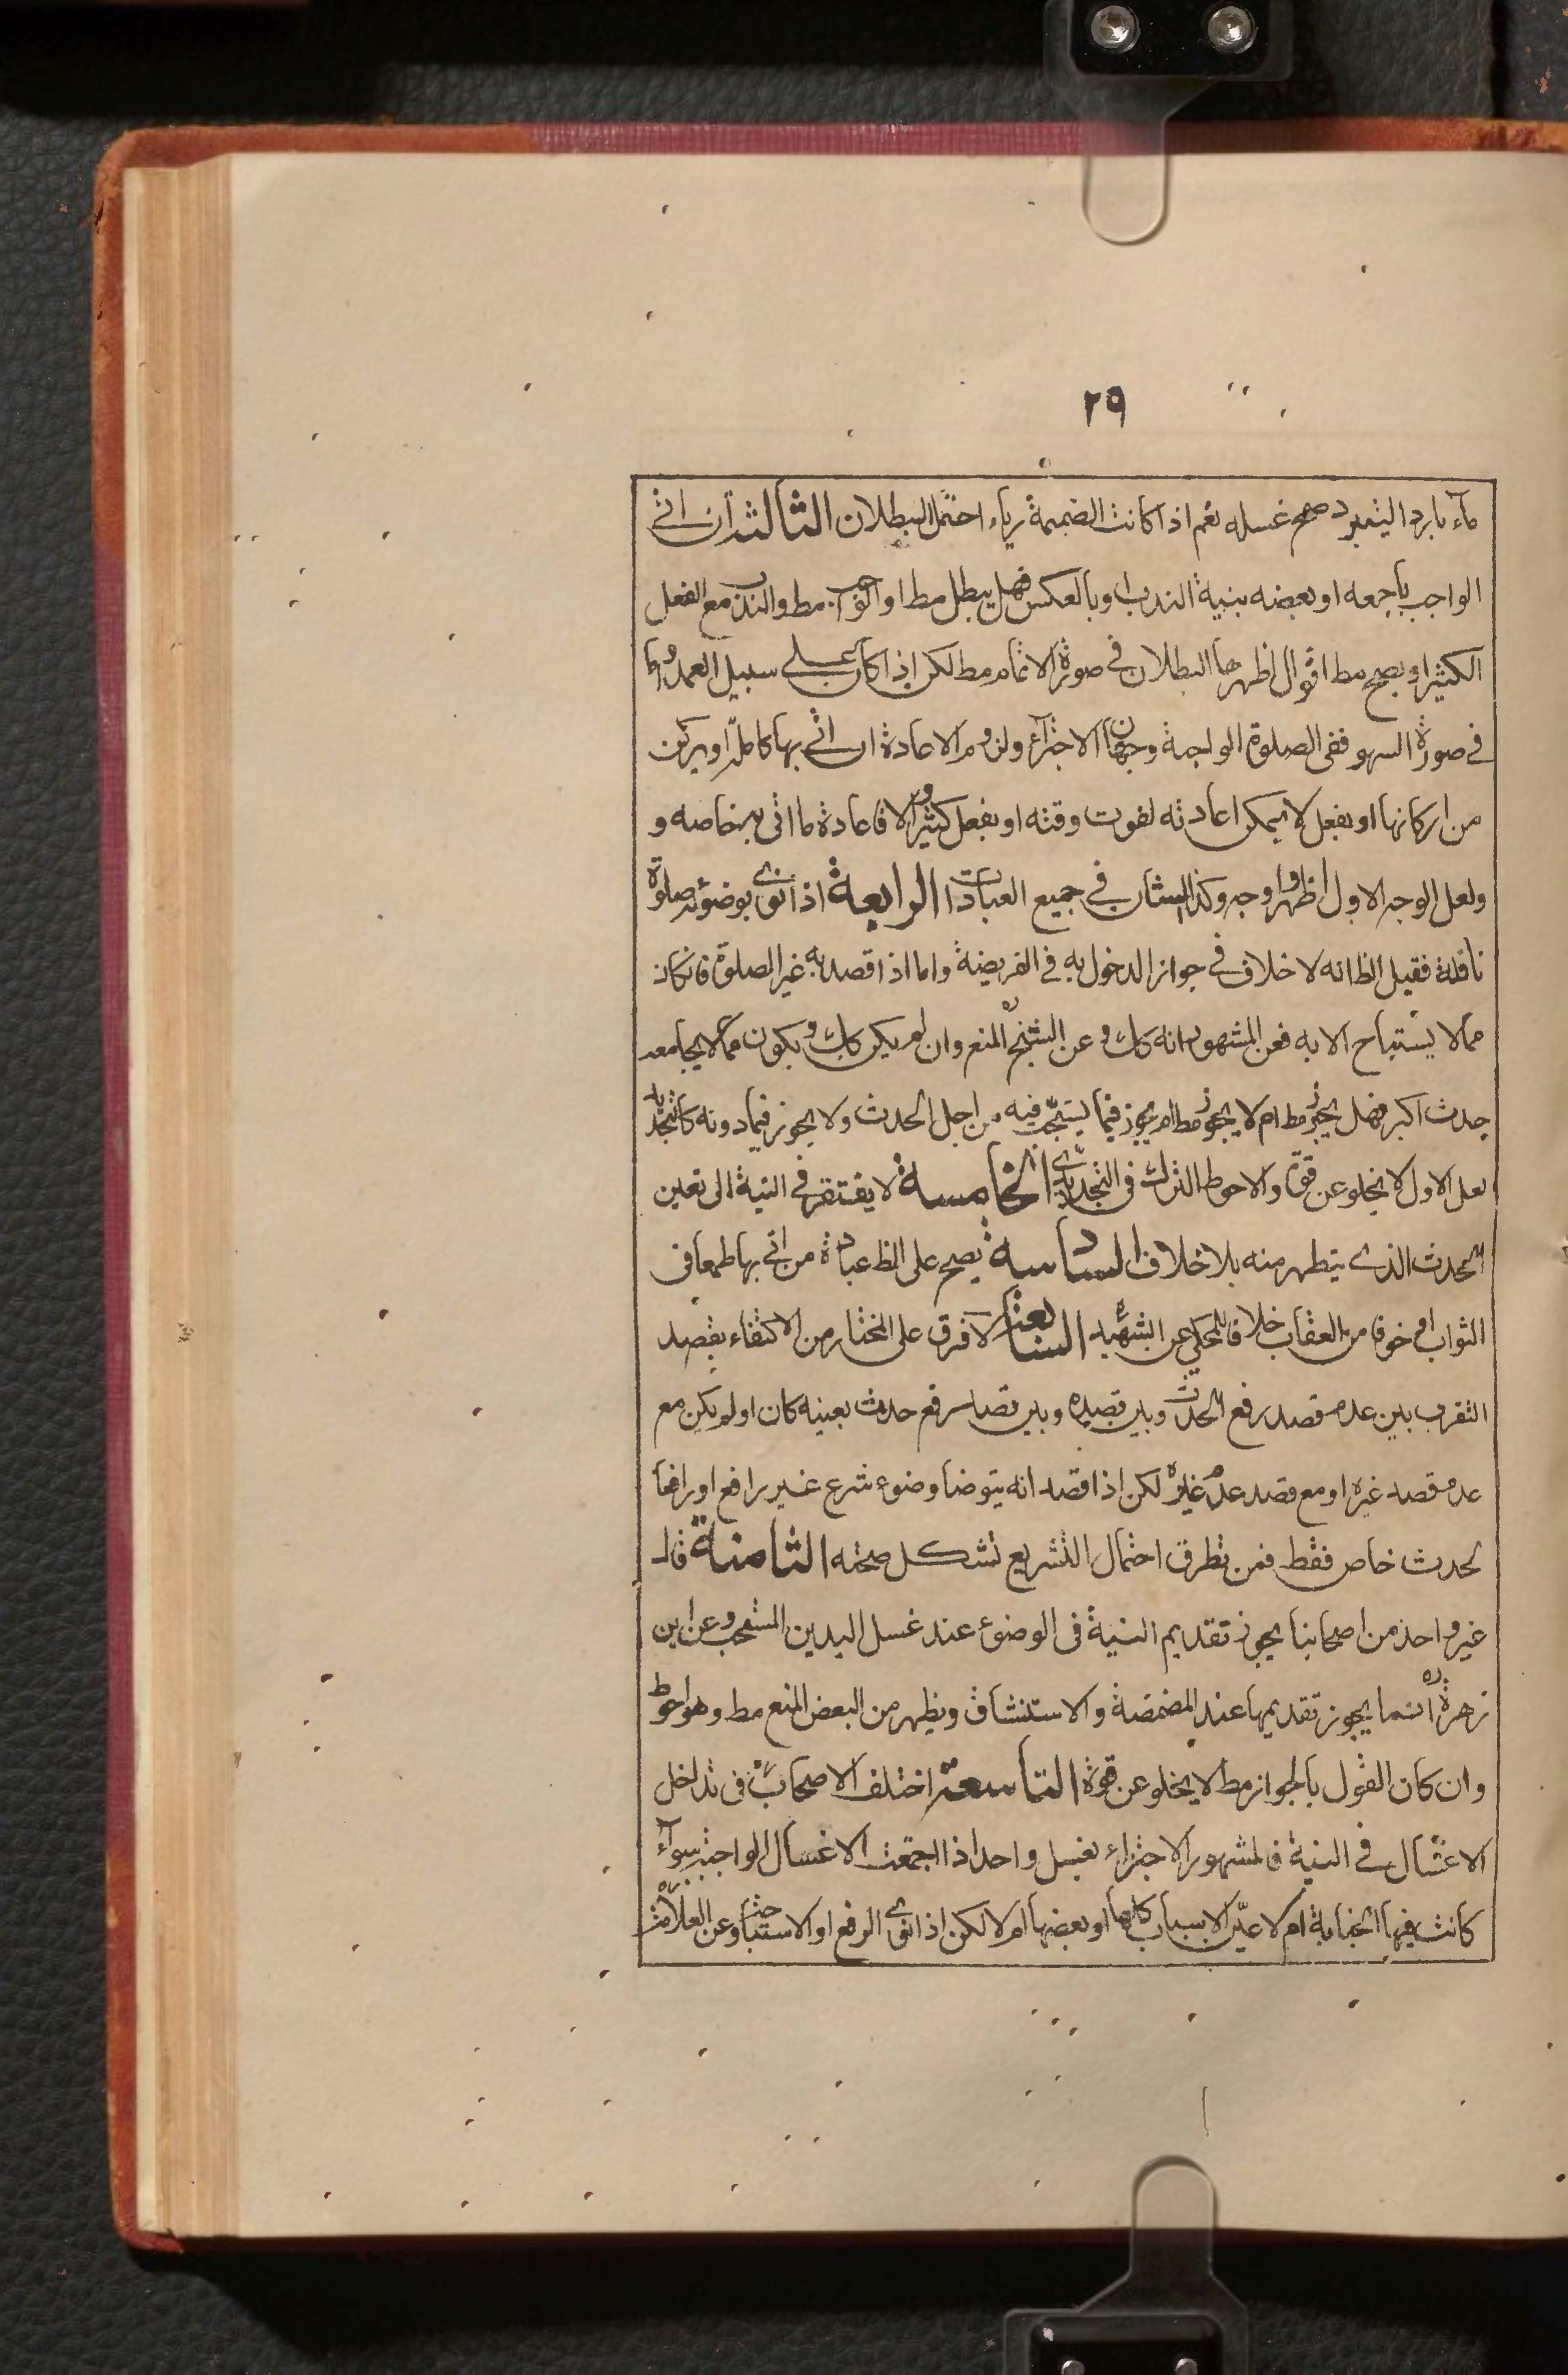 ٢٩
ماء بارد اليتبرد صح غسله نعم اذا كانت الضميمة رياء احتمل البطلان الثالثة ان اتى
الواجب باجمعه او بعضه بنية الندب او بالعكس فهل يبطل مط او الواجب مط والندب مع الفعل
الكثير او يصح مط اقوال اظهرها البطلان في صورة الاتمام مط لكن اذا كان على سبيل العمد واما
في صورة السهو ففى الصلوة الواجبة وجهان الاجتزاء ولزوم الاعادة ان اتى بها كاملا او بركن
من اركانها او بفعل لا يمكن اعادته لفوت وقته او بفعل كثير والا فاعادة ما اتى به خاصه و
ولعل الوجه الاول اظهر واوجه وكذا الشان في جميع العبادات الرابعة اذا نوى بوضوئه صلوة
نافلة فقيل الظ انه لا خلاف في جواز الدخول به في الفريضة واما اذا قصد به غير الصلوة فانكان
مما لا يستباح الا به فعن المشهور انه كذلك وعن الشيخ ره المنع وان لم يكن كذلك ويكون مما لا يجامعه
حدث اكبر فهل يجوز مط ام لا يجوز مط ام يجوز فيما يستحب فيه من اجل الحدث ولا يجوز فيما دونه كالتجديد
لعل الاول لا يخلو عن قوة والاحوط الترك فى التجديدى الخامسة لا يفتقر في النية الى تعين
الحدث الذي يتطهر منه بلا خلاف السادسة يصح على الظ عبادة من اتى بها طمعا فى
الثواب او خوفا من العقاب خلافا للمحكي عن الشهيد ره السابعة لا فرق على المختار من الاكتفاء بقصد
التقرب بين عدم قصد رفع الحدث وبين قصده وبين قصد رفع حدث بعينه كان او لم يكن مع
عدم قصد غيره او مع قصد عدم غيره لكن اذا قصد انه يتوضا وضوء شرع غير رافع او رافعا
لحدث خاص فقط فمن تطرق احتمال التشريع تشكل صحته الثامنة قال
غير واحد من اصحابنا يجوز تقديم النية فى الوضوء عند غسل اليدين المستحب وعن ابن
زهرة ره انما يجوز تقديمها عند المضمضة والاستنشاق ويظهر من البعض المنع مط وهو احوط
وان كان القول بالجواز مط لا يخلو عن قوة التاسعة اختلف الاصحاب ره فى تداخل
الاغتسال في النية فالمشهور الاجتزاء بغسل واحد اذا اجتمعت الاغسال الواجبة سواء
كانت فيها الجنابة ام لا عين الاسباب كلها او بعضها ام لا لكن اذا نوى الرفع او الاستباحة وعن العلامة ره